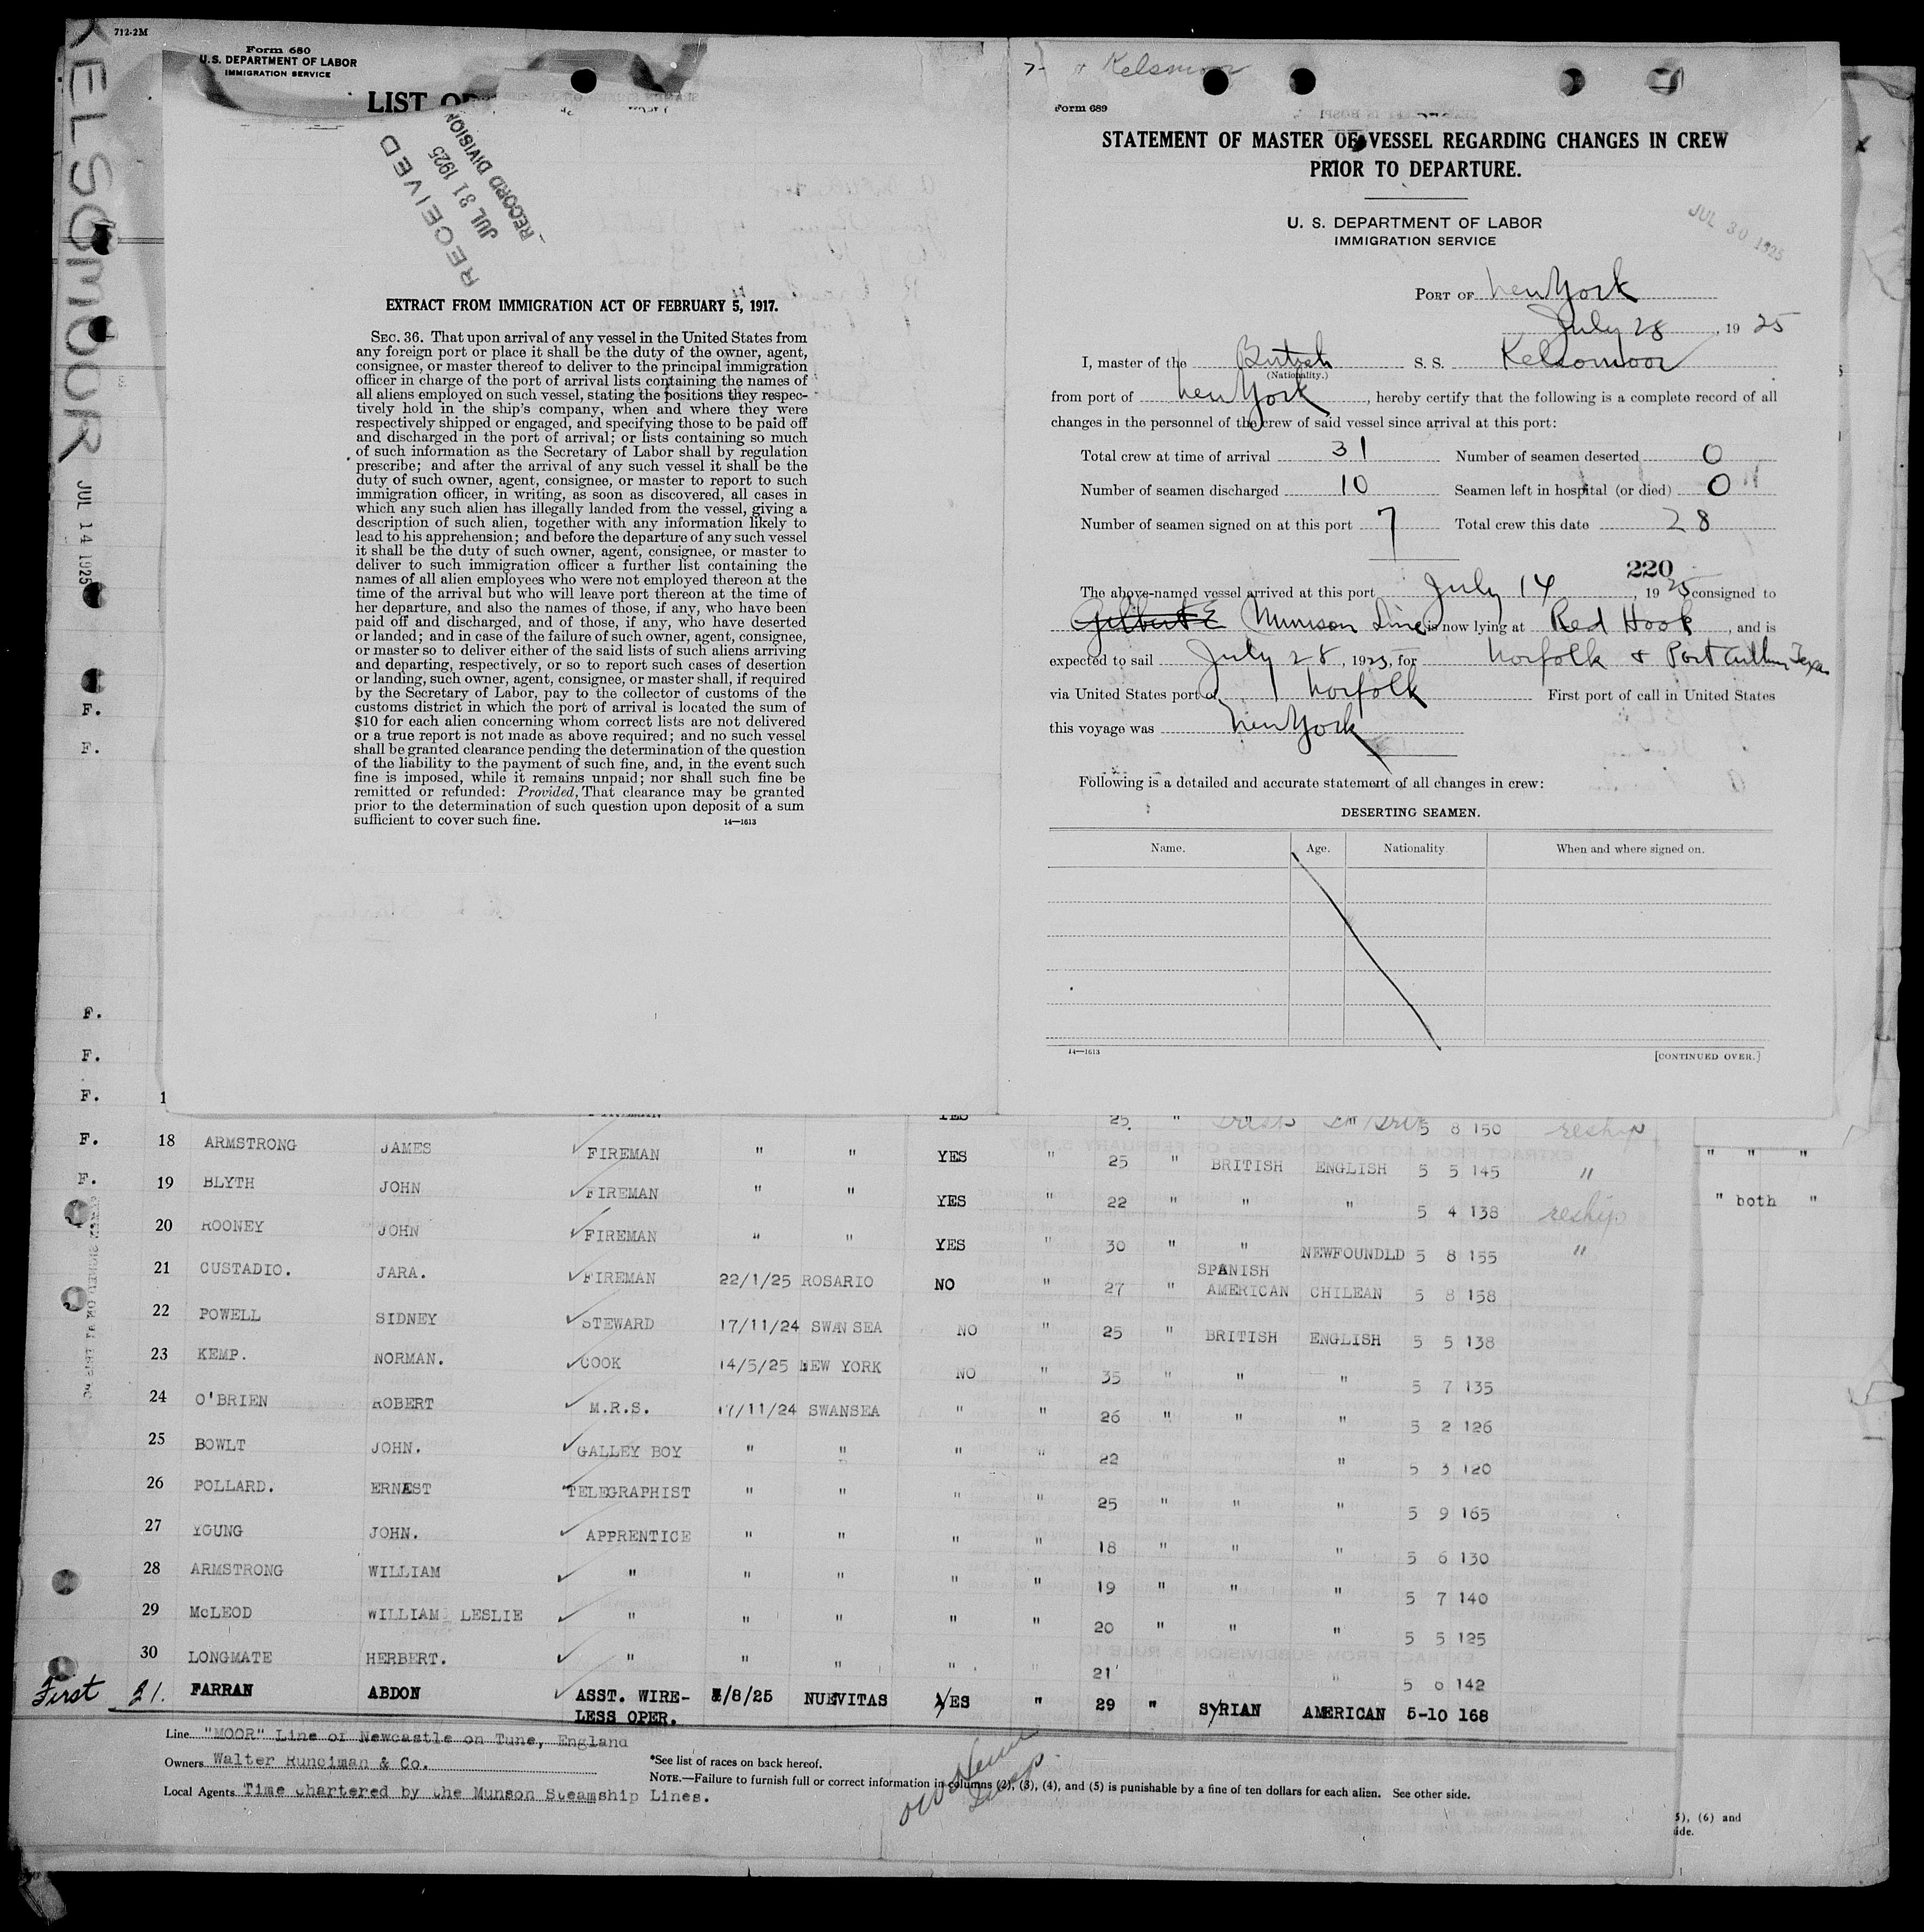 712-2M
Form 680
U.S. DEPARTMENT OF LABOR
IMMIGRATION SERVICE
LIST OF
RECEIVED
JUL 31 1925
RECORD DIVISION
KELSOMOOR
JUL 14 1925
EXTRACT FROM IMMIGRATION ACT OF FEBRUARY 5, 1917.
SEC. 36. That upon arrival of any vessel in the United States from
any foreign port or place it shall be the duty of the owner, agent,
consignee, or master thereof to deliver to the principal immigration
officer in charge of the port of arrival lists containing the names of
all aliens employed on such vessel, stating the positions they respec-
tively hold in the ship's company, when and where they were
respectively shipped or engaged, and specifying those to be paid off
and discharged in the port of arrival; or lists containing so much
of such information as the Secretary of Labor shall by regulation
prescribe; and after the arrival of any such vessel it shall be the
duty of such owner, agent, consignee, or master to report to such
immigration officer, in writing, as soon as discovered, all cases in
which any such alien has illegally landed from the vessel, giving a
description of such alien, together with any information likely to
lead to his apprehension; and before the departure of any such vessel
it shall be the duty of such owner, agent, consignee, or master to
deliver to such immigration officer a further list containing the
names of all alien employees who were not employed thereon at the
time of the arrival but who will leave port thereon at the time of
her departure, and also the names of those, if any, who have been
paid off and discharged, and of those, if any, who have deserted
or landed; and in case of the failure of such owner, agent, consignee,
or master so to deliver either of the said lists of such aliens arriving
and departing, respectively, or so to report such cases of desertion
or landing, such owner, agent, consignee, or master shall, if required
by the Secretary of Labor, pay to the collector of customs of the
customs district in which the port of arrival is located the sum of
$10 for each alien concerning whom correct lists are not delivered
or a true report is not made as above required; and no such vessel
shall be granted clearance pending the determination of the question
of the liability to the payment of such fine, and, in the event such
fine is imposed, while it remains unpaid; nor shall such fine be
remitted or refunded: Provided, That clearance may be granted
prior to the determination of such question upon deposit of a sum
sufficient to cover such fine. 14—1613
Kelsomoor
Form 689
STATEMENT OF MASTER OF VESSEL REGARDING CHANGES IN CREW
PRIOR TO DEPARTURE.
U. S. DEPARTMENT OF LABOR
IMMIGRATION SERVICE
JUL 30 1925
PORT OF New York
July 28, 19 25
I, master of the British S. S. Kelsomoor
(Nationality.)
from port of New York, hereby certify that the following is a complete record of all
changes in the personnel of the crew of said vessel since arrival at this port:
Total crew at time of arrival 31 Number of seamen deserted 0
Number of seamen discharged 10 Seamen left in hospital (or died) 0
Number of seamen signed on at this port 7 Total crew this date 28
220
The above-named vessel arrived at this port July 14, 19 25 consigned to
Munson Line is now lying at Red Hook, and is
expected to sail July 28, 1925, for Norfolk & Port Arthur Texas
via United States port of Norfolk First port of call in United States
this voyage was New York
Following is a detailed and accurate statement of all changes in crew:
DESERTING SEAMEN.
Name. Age. Nationality When and where signed on.
14—1613 [CONTINUED OVER.]
F.
F.
F.
F.
F.
F.
F.
1 FIREMAN YES 25. " 5 8 150 reship
18 ARMSTRONG JAMES FIREMAN " " YES " 25 " BRITISH ENGLISH 5 5 145 " " " "
19 BLYTH JOHN FIREMAN " " YES " 22 " " " 5 4 138 reship " both "
20 ROONEY JOHN FIREMAN " " YES " 30 " " NEWFOUNDLD 5 8 155 "
21 CUSTADIO. JARA. FIREMAN 22/1/25 ROSARIO NO " 27 " SPANISH AMERICAN CHILEAN 5 8 158
22 POWELL SIDNEY STEWARD 17/11/24 SWANSEA NO " 25 " BRITISH ENGLISH 5 5 138
23 KEMP. NORMAN. COOK 14/5/25 NEW YORK NO " 35 " " " 5 7 135
24 O'BRIEN ROBERT M.R.S. 17/11/24 SWANSEA " " 26 " " " 5 2 126
25 BOWLT JOHN. GALLEY BOY " " " " 22 " " " 5 3 120
26 POLLARD. ERNEST TELEGRAPHIST " " " " 25 " " " 5 9 165
27 YOUNG JOHN. APPRENTICE " " " " 18 " " " 5 6 130
28 ARMSTRONG WILLIAM " " " " " 19 " " " 5 7 140
29 McLEOD WILLIAM LESLIE " " " " " 20 " " " 5 5 125
30 LONGMATE HERBERT. " " " " " 21 " " " 5 6 142
First 31. FARRAN ABDON ASST. WIRE- /8/25 NUEVITAS YES " 29 " SYRIAN AMERICAN 5-10 168
LESS OPER.
Line "MOOR" Line of Newcastle on Tune, England
Owners Walter Runciman & Co.
Local Agents Time Chartered by the Munson Steamship Lines.
*See list of races on back hereof.
NOTE.—Failure to furnish full or correct information in columns (2), (3), (4), and (5) is punishable by a fine of ten dollars for each alien. See other side.
5), (6) and
ide.